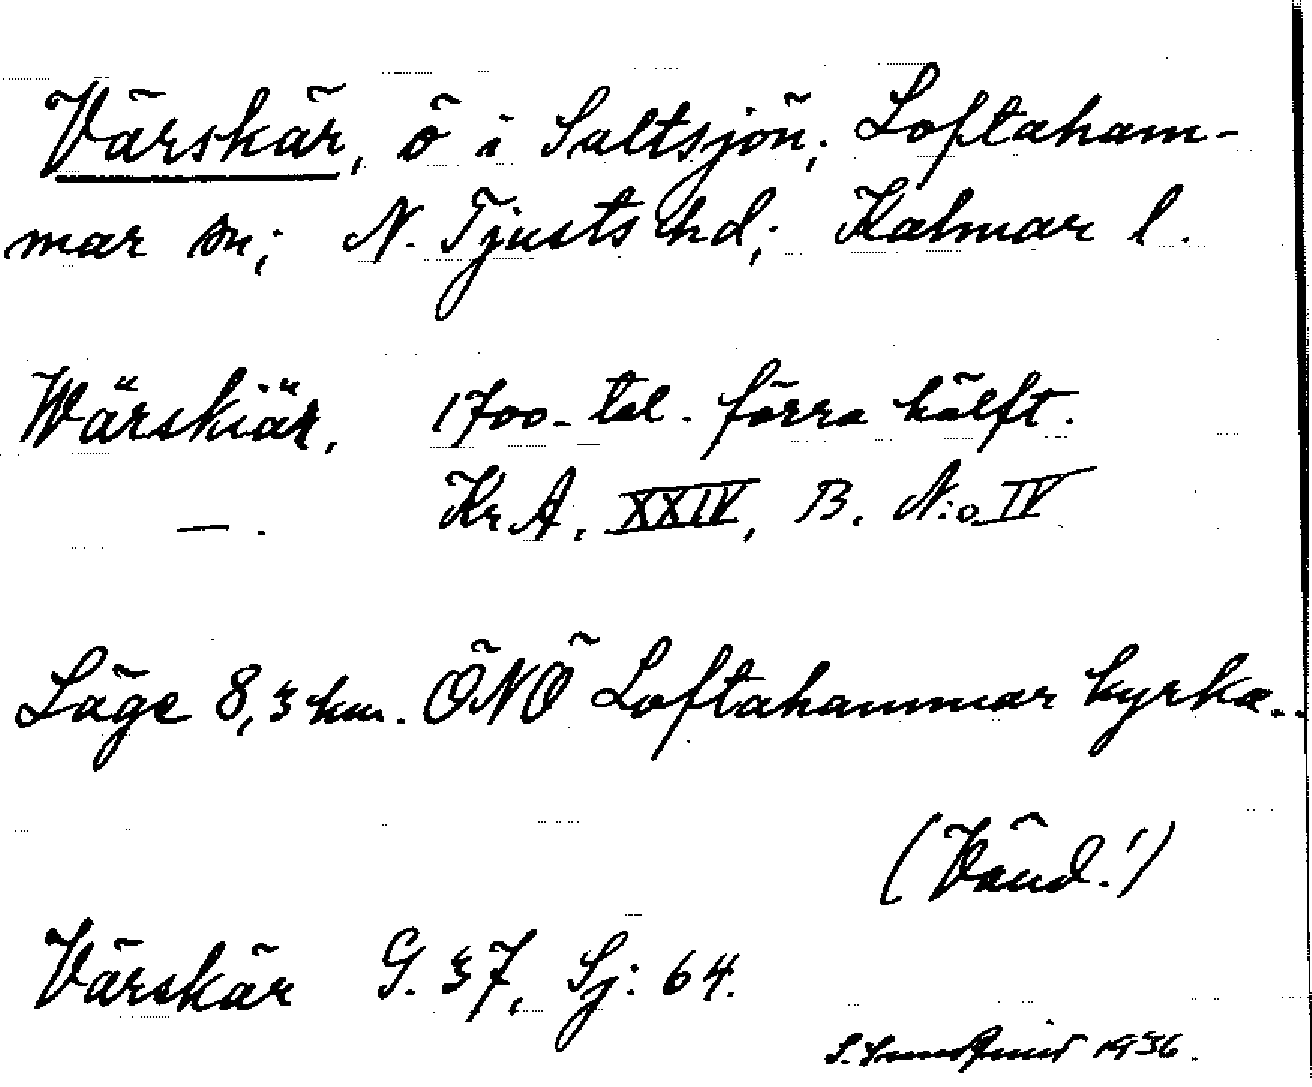 Värskär, ö i Saltsjön; Loftaham-
mar sn; N. Tjusts hd; Kalmar l.
Wärskiär, 1700-tal. förra hälft.
— . Kr. A, XXIV, B. N:o IV
Läge 8,3 km. ÖNÖ Loftahammar kyrka.
(Vänd!)
Värskär G. 37, Sj: 64.
S. 1936.